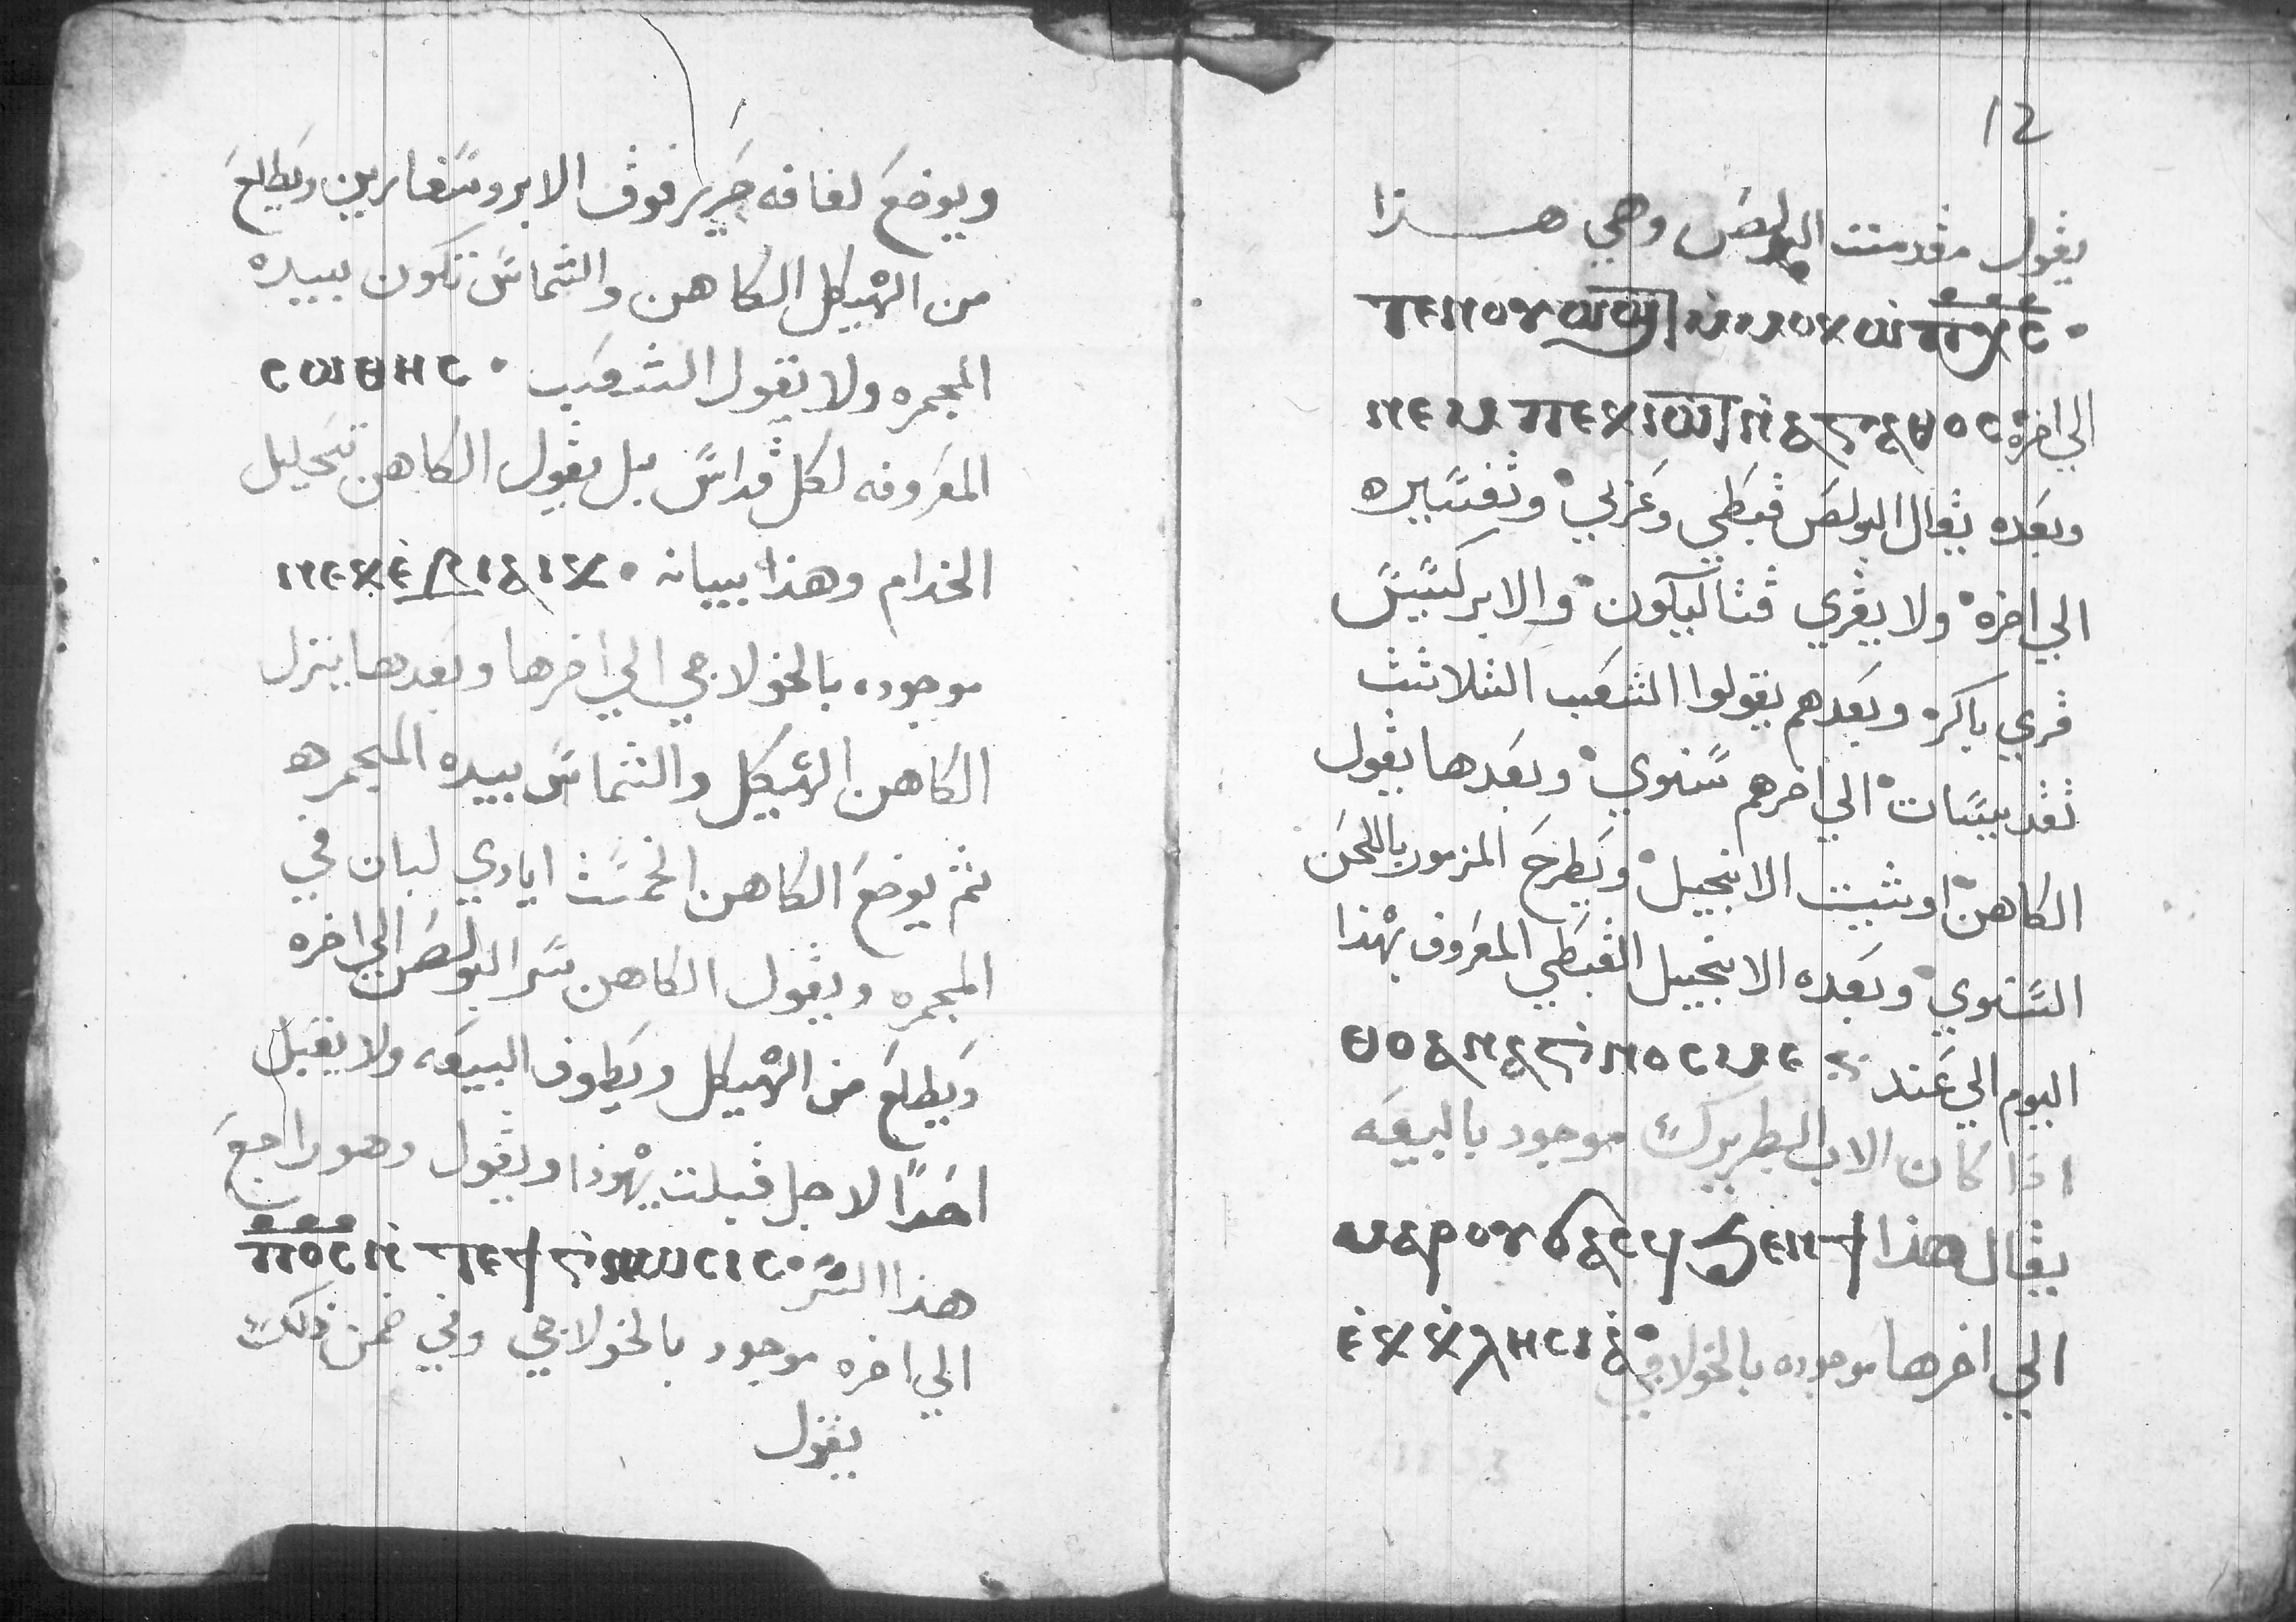 12
يقول مقدمت البولص وهي هذا
ⲧⲉⲛⲟⲩⲱϣⲧ ⲙ̀ⲙⲟⲕ ⲱ̀ ⲡⲭ̅ⲥ̅
ⲛⲉⲙ ⲡⲉⲕⲓⲱⲧ ⲛ̀ⲁⲅⲁⲑⲟⲥ الي اخره
وبعده يقال البولص قبطي وعربي وتفسيره
الي اخره ولا يقري قثاليكون والابركسيس
قري باكره وبعدهم يقولوا الشعب الثلاثث
تقديسات الي اخرهم سنوي وبعدها يقول
الكاهن اوشيت الانجيل ويطرح المزمور باللحن
السنوي وبعده الانجيل القبطي المعروف بهذا
اليوم الي عند ⲑⲟⲁⲛⲁⲅ̀ⲛⲟⲥⲓⲙⲉ
اذا كان الاب البطريرك موجود بالبيعه
يقال هذا ⲙⲁⲣⲟⲩϭⲁⲥϥ ϧⲉⲛϯ
ⲉ̀ⲕⲕ̀ⲗⲏⲥⲓⲁ̀ الي اخرها موجوده بالخولاجي
ويوضع لفافه حرير فوق الابروسفارين ويطلع
من الهيكل الكاهن والشماس تكون بيده
المجمره ولا يقول الشعب ⲥⲱⲑⲏⲥ
المعروفه لكل قداس بل يقول الكاهن تحليل
الخدام وهذا بيانه ⲛⲉⲕⲉ̀ⲃⲓⲁⲓⲕ
موجوده بالخولاجي الي اخرها وبعدها ينزل
الكاهن الهيكل والشماس بيده المجمره
ثم يوضع الكاهن الخمست ايادي لبان في
المجمره ويقول الكاهن سر البولص الي اخره
ويطلع من الهيكل ويطوف البيعه ولا يقبل
احدا لاجل قبلت يهوذا ويقول وهو راجع
هذا السر ⲡⲟ̅ⲥ̅ ⲛ̀ⲧⲉϯⲅ̀ⲛⲱⲥⲓⲥ
الي اخره موجود بالخولاجي وفي ضمن ذلك
يقول